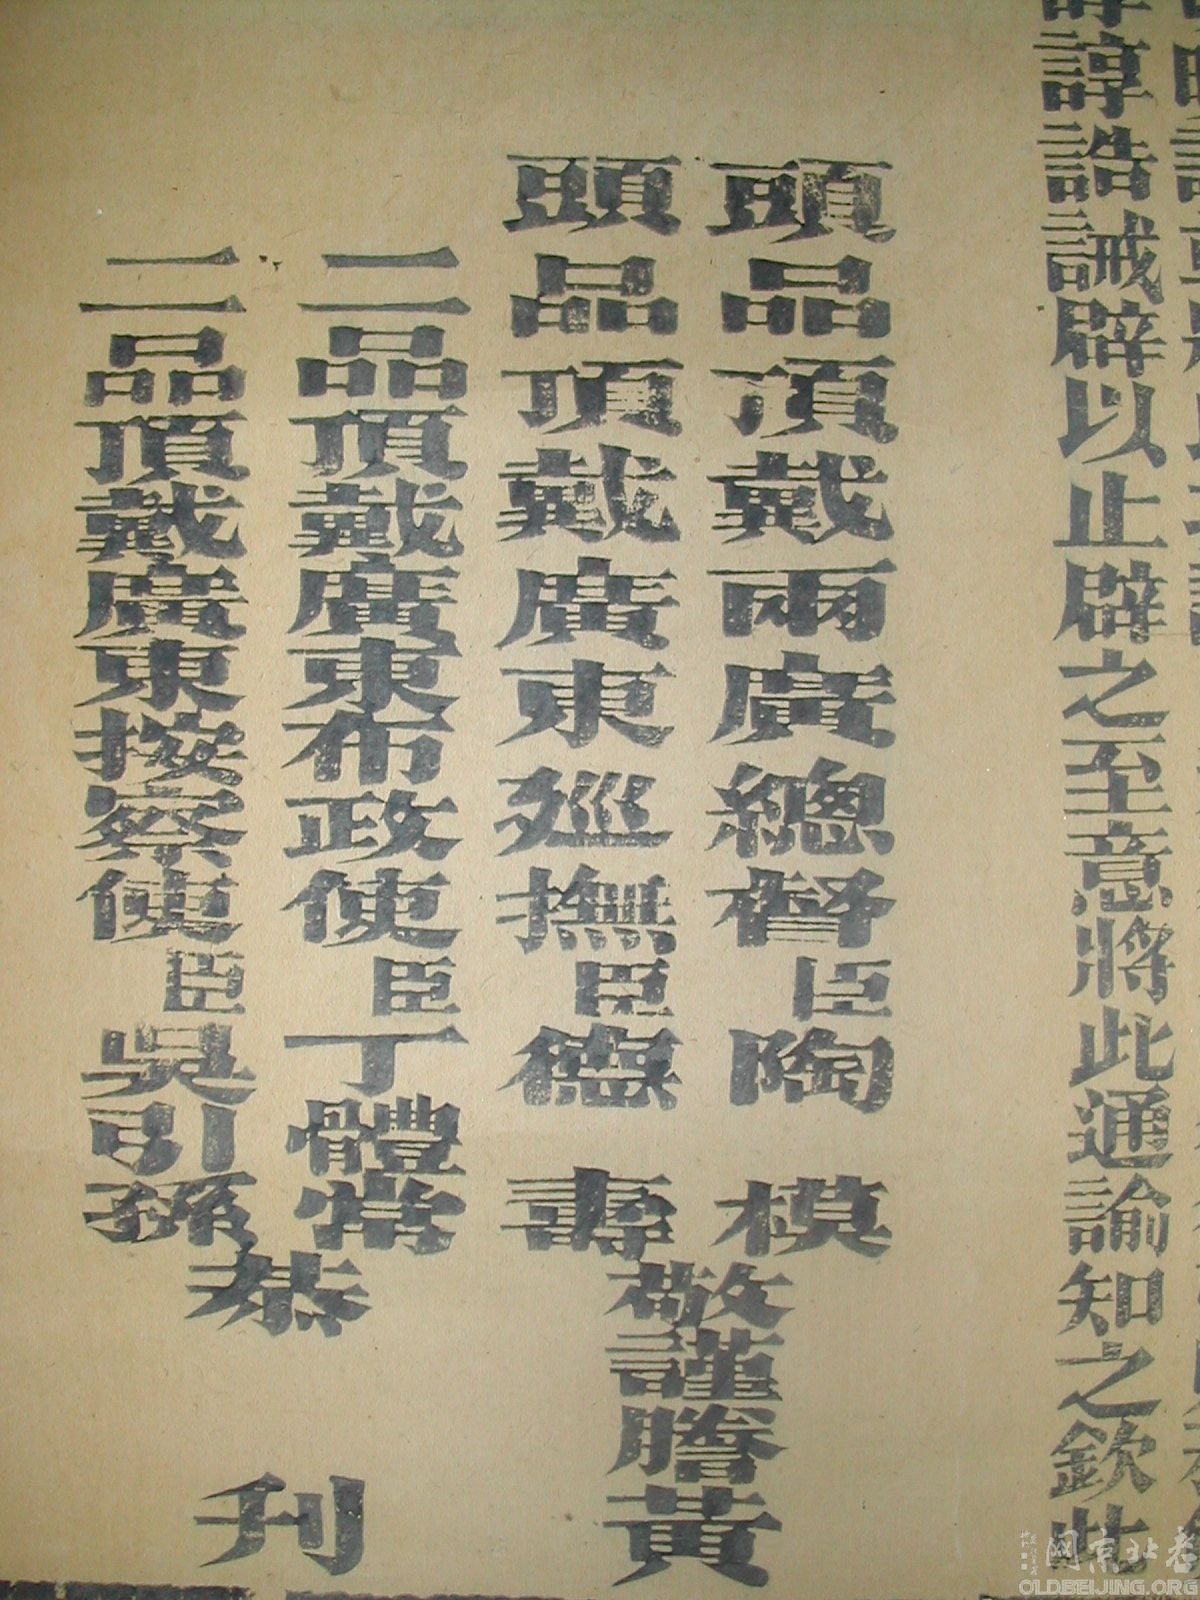 諄諄誥誡辟以止辟之至意將此通諭知之欽此
頭品頂戴兩廣總督臣陶模
頭品頂戴廣東巡撫臣德壽
敬謹謄黃
二品頂戴廣東布政使臣丁體常
二品頂戴廣東按察使臣吳引孫
恭刊
老北京网
OLDBEIJING.ORG